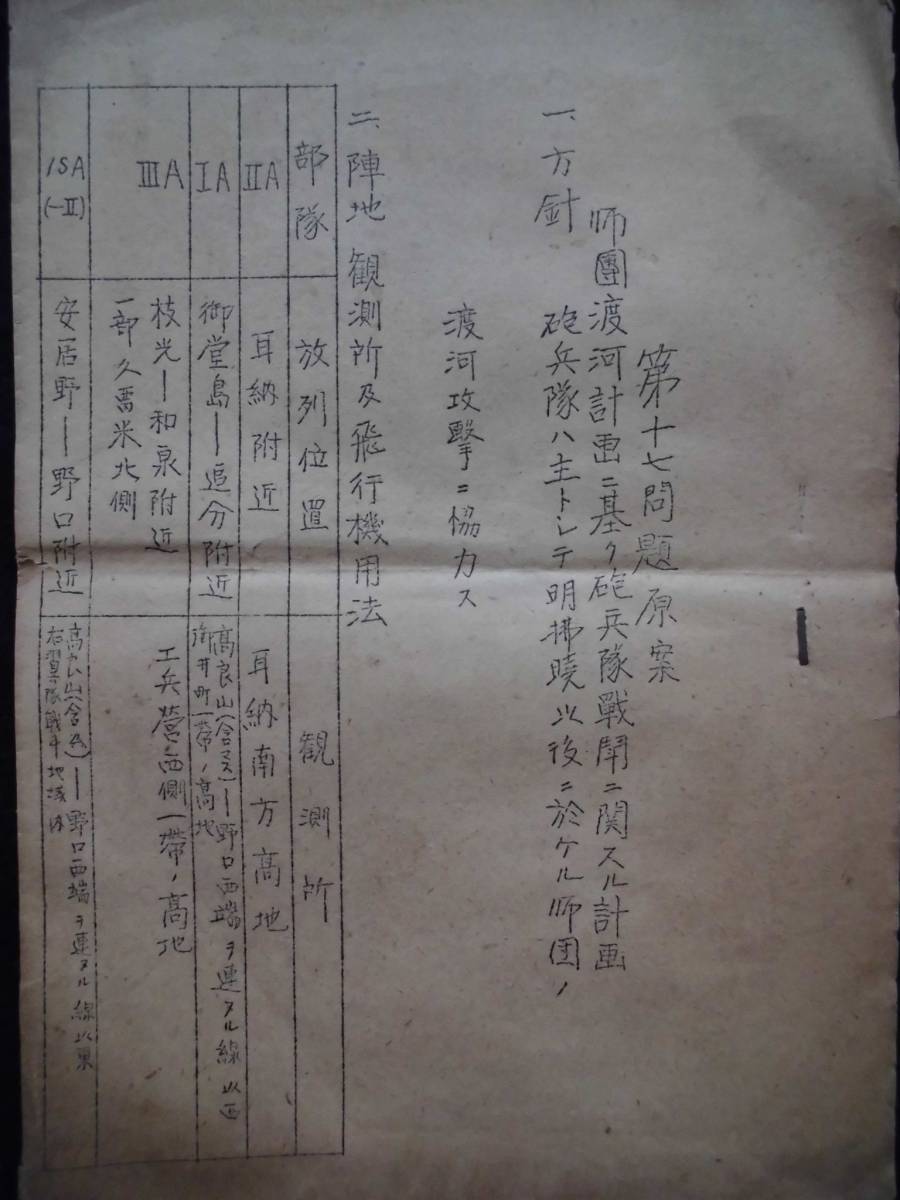 第十七問題原案
師團渡河計画ニ基ク砲兵隊戰闘ニ関スル計画
一、方針
砲兵隊ハ主トシテ明拂曉以後ニ於ケル師団ノ
渡河攻撃ニ協力ス
二、陣地観測所及飛行機用法
部隊
放列位置
観測所
ⅡA
耳納附近
耳納南方高地
ⅠA
御堂島―追分附近
高良山(含マス)―野口西端ヲ連ヌル線以西
御井町一帯ノ高地
ⅢA
枝光―和泉附近
一部久留米北側
工兵營西側一帯ノ高地
15A
(-Ⅱ)
安居野―野口附近
野口西端ヲ連ヌル線以東
右翼隊戰斗地域内